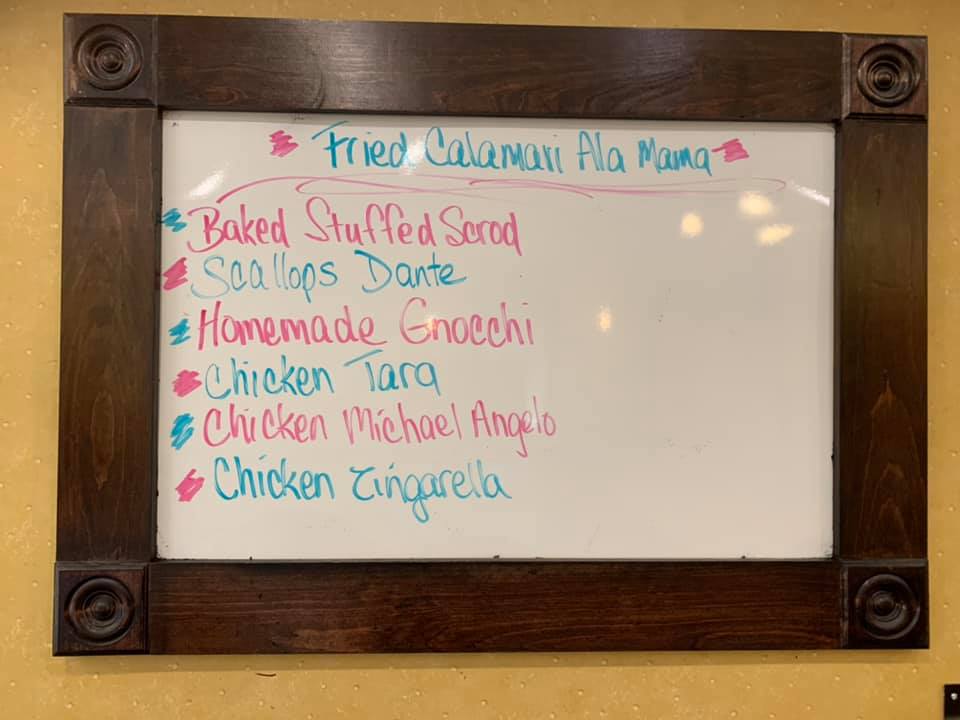 Fried Calamari Ala Mama
Baked Stuffed Scrod
Scallops Dante
Homemade Gnocchi
Chicken Tara
Chicken Michael Angelo
Chicken Zingarella